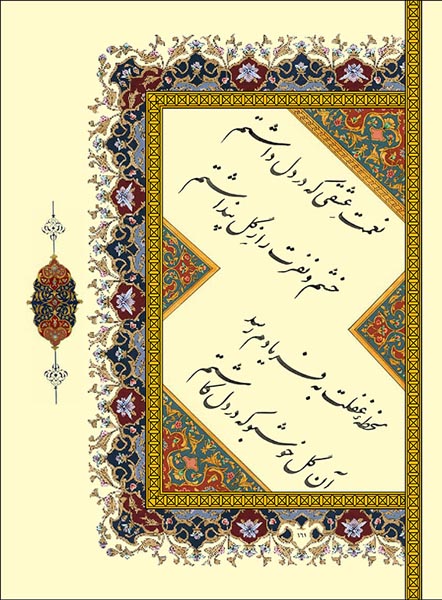 نعمت عشقی که در دل داشتم
خشم و نفرت را ز گل پنداشتم
لحظهٔ غفلت به فریادم رسید
آن گل خوشبو که در دل کاشتم
۱۶۱